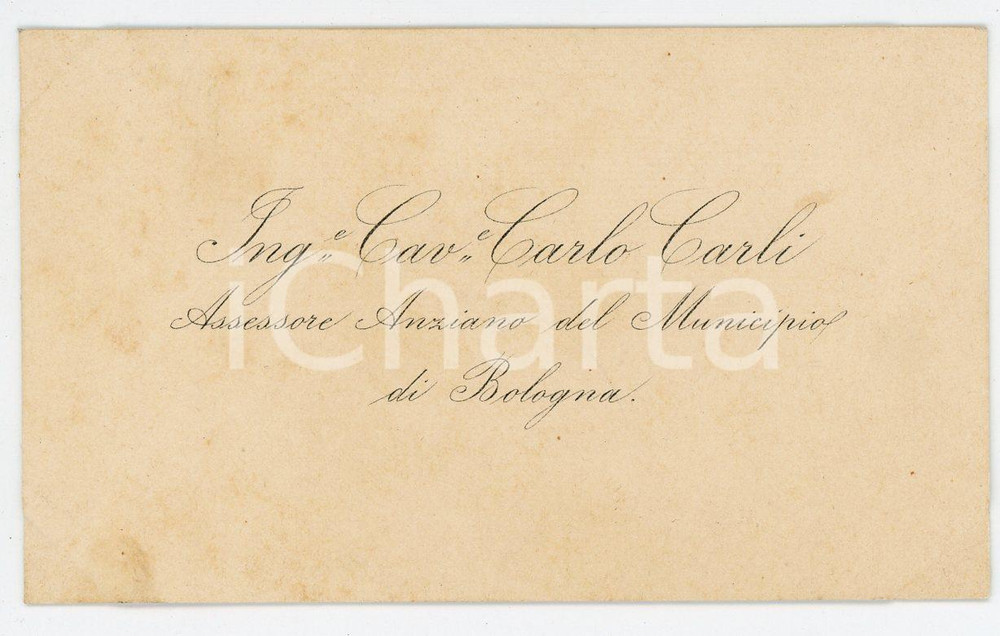 Ing.e Cav.e Carlo Carli
Assessore Anziano del Municipio
di Bologna.
iCharta